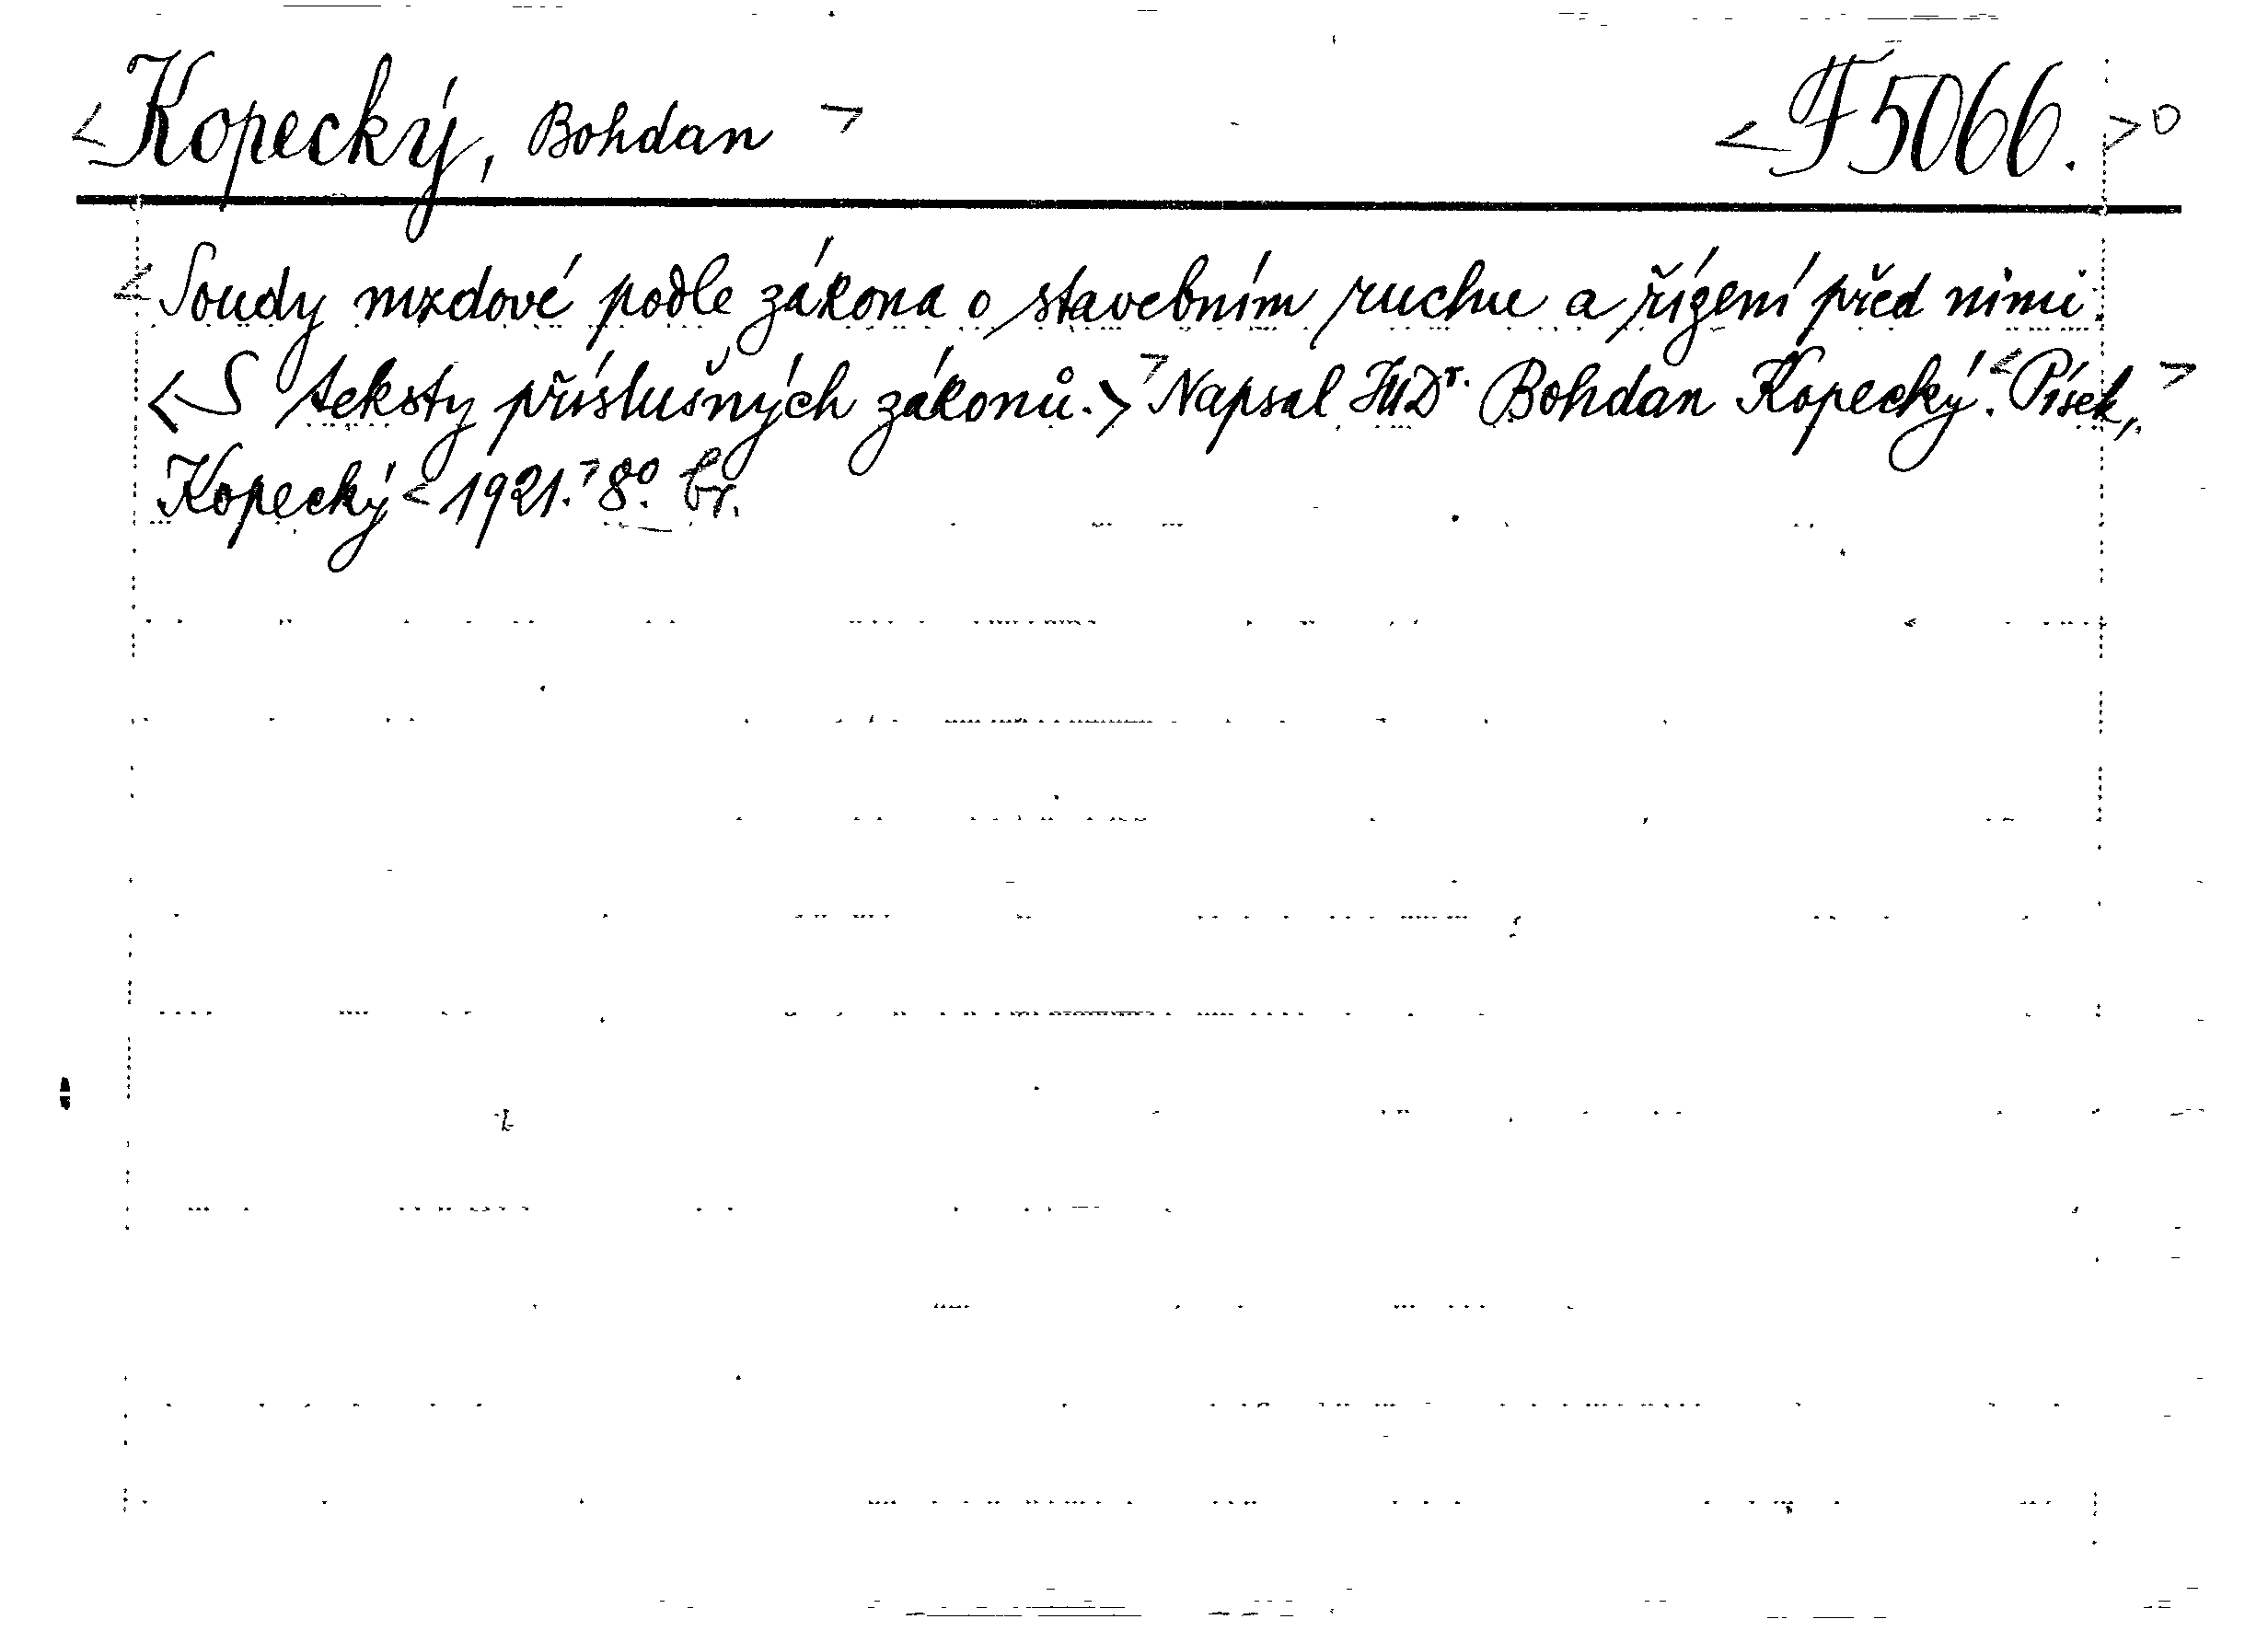 <Kopecký, Bohdan> <F 5066.>o
<Soudy mzdové podle zákona o stavebním ruchu a řízení před nimi.
<S teksty příslušných zákonů.>> Napsal JUDr. Bohdan Kopecký. <Písek,>
Kopecký <1921.> 8°. br.